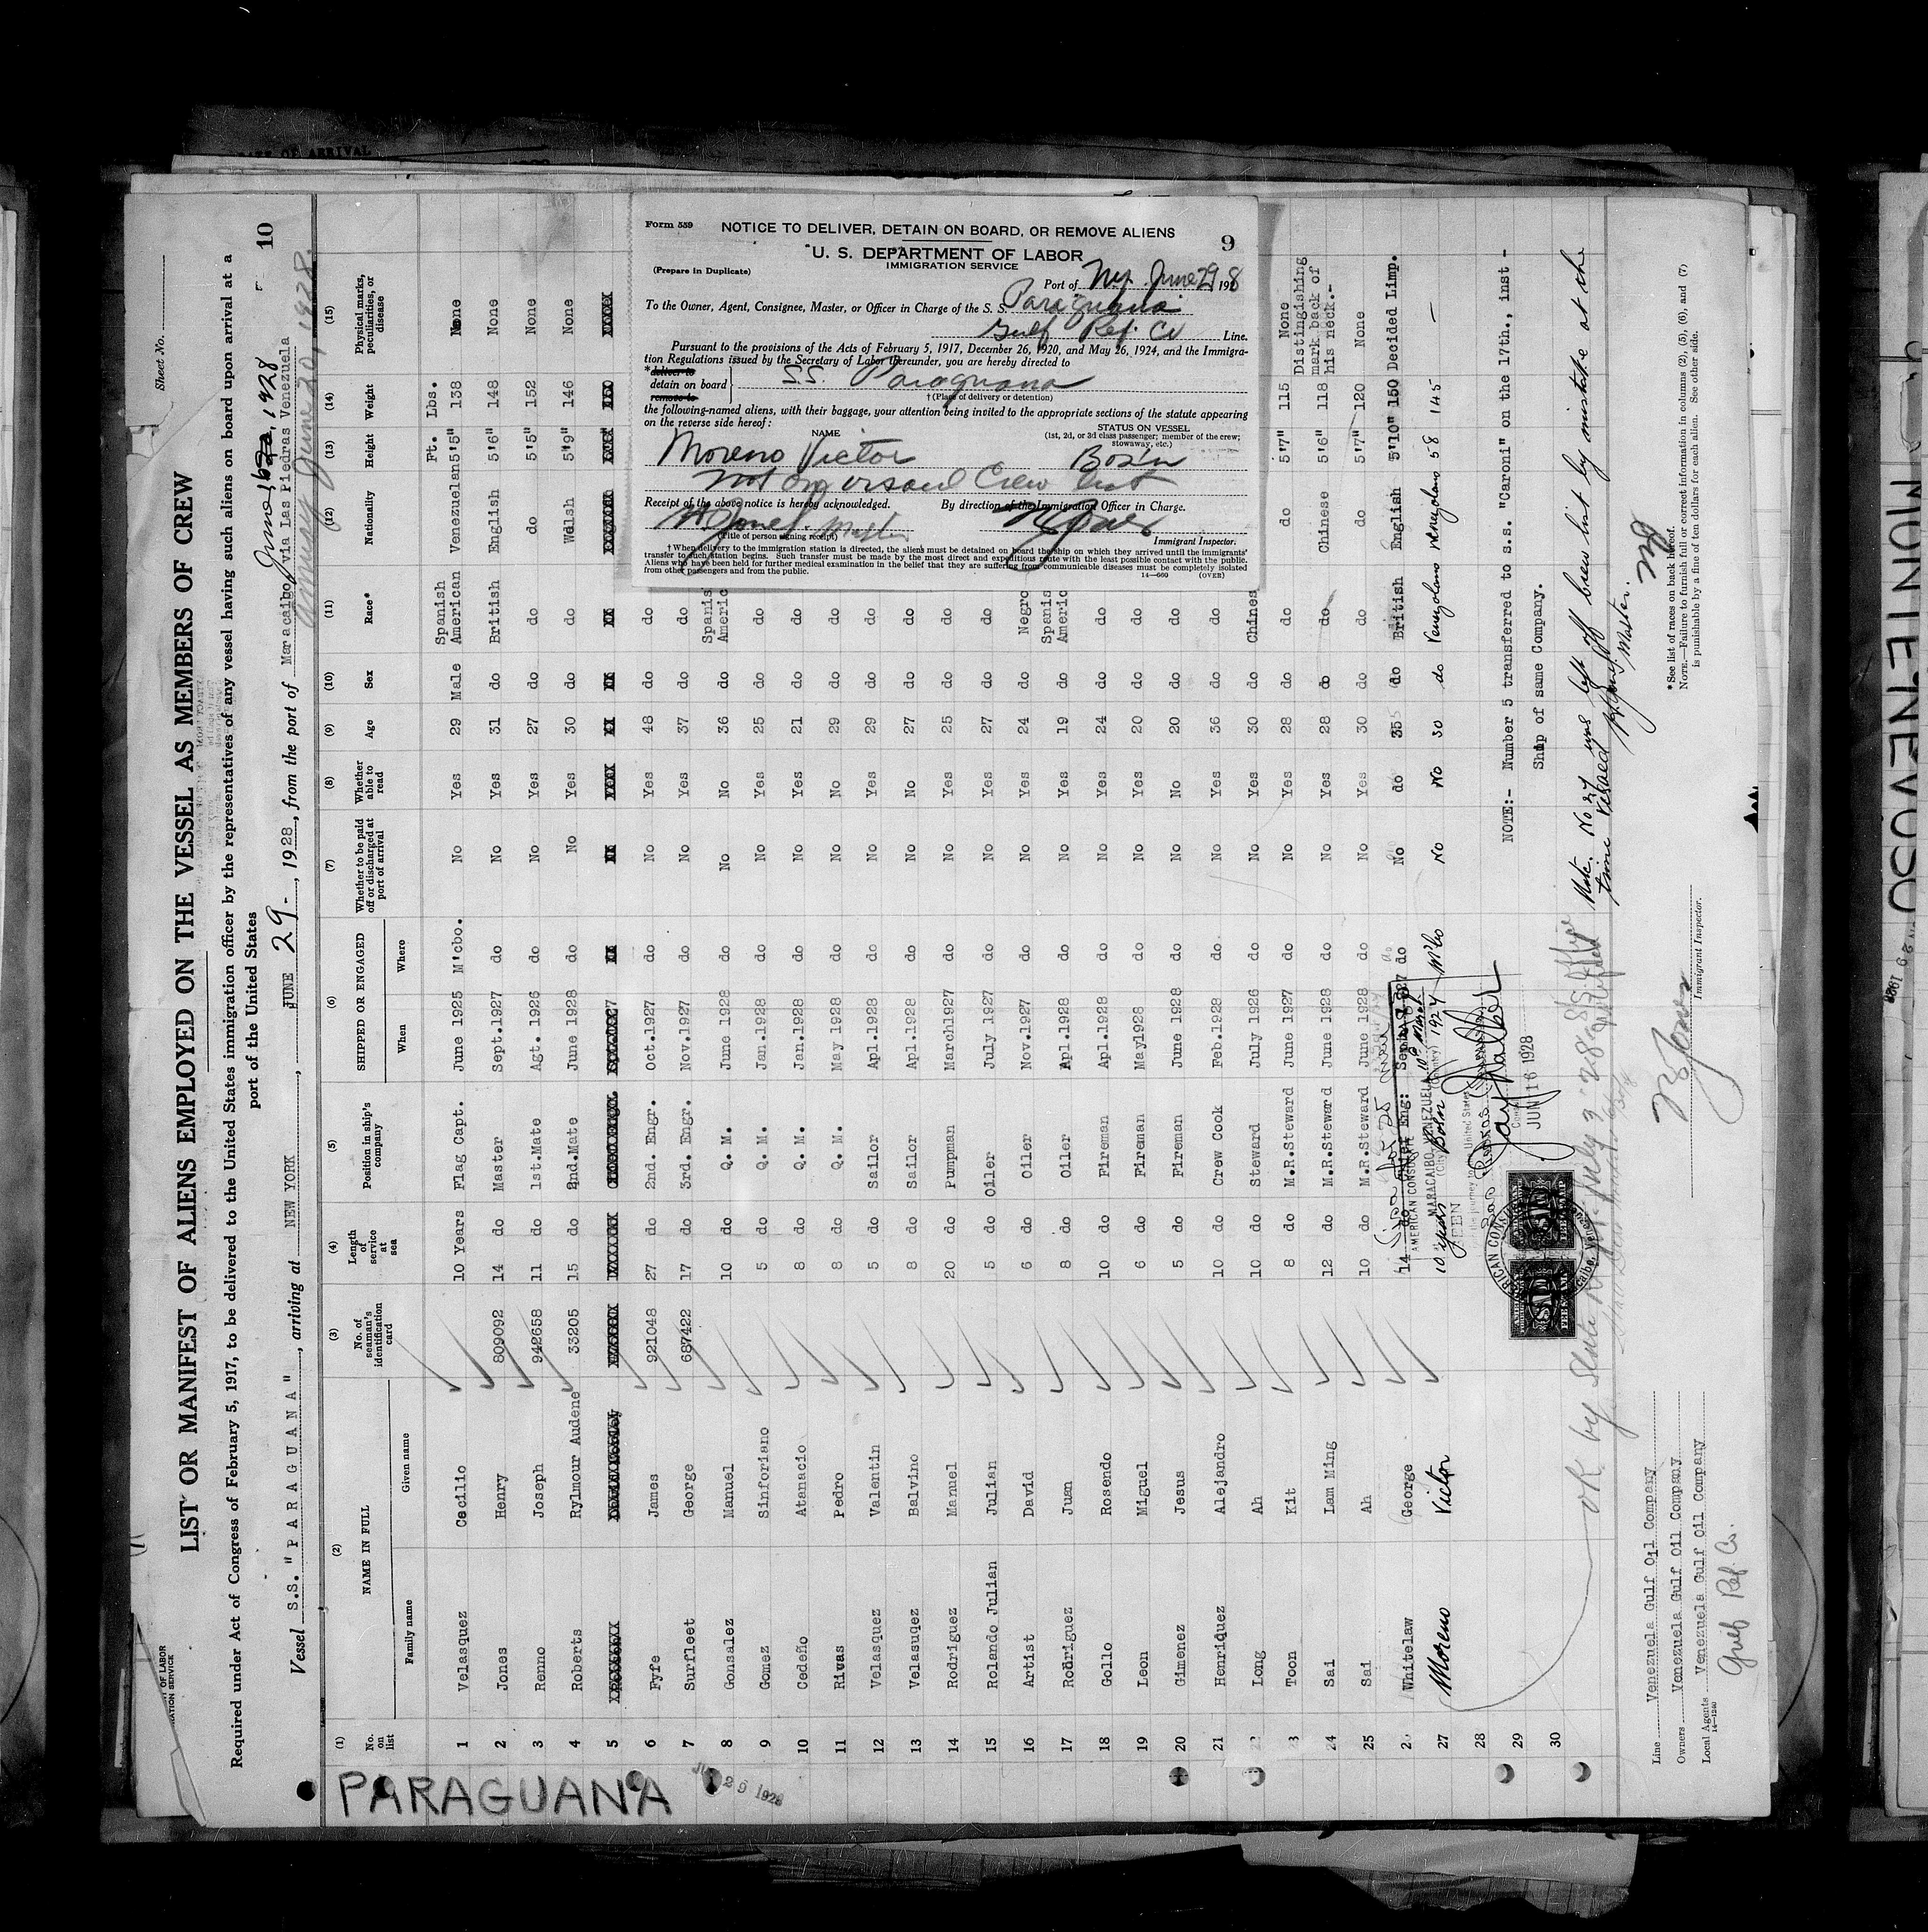 10
Sheet No.
LIST OR MANIFEST OF ALIENS EMPLOYED ON THE VESSEL AS MEMBERS OF CREW
Required under Act of Congress of February 5, 1917, to be delivered to the United States immigration officer by the representatives of any vessel having such aliens on board upon arrival at a
port of the United States
Vessel S.S. "PARAGUANA", arriving at NEW YORK, JUNE 29-, 1928, from the port of Maracaibo, via Las Piedras Venezuela
June, 16, 1928
(1) (2) (3) (4) (5) (6) (7) (8) (9) (10) (11) (12) (13) (14) (15)
No. on list NAME IN FULL Family name Given name No. of seaman's identification card Length of service at sea Position in ship's company SHIPPED OR ENGAGED When Where Whether to be paid off or discharged at port of arrival Whether able to read Age Sex Race* Nationality Height Weight Physical marks, peculiarities, or disease
Ft. Lbs.
1 Velasquez Cecilio 10 Years Flag Capt. June 1925 M'cbo. No Yes 29 Male Spanish American Venezuelan 5'5" 138 None
2 Jones Henry 809092 14 do Master Sept.1927 do No Yes 31 do British English 5'6" 148 None
3 Renno Joseph 942658 11 do 1st.Mate Agt. 1926 do No Yes 27 do do do 5'5" 152 None
4 Roberts Rylmour Audene 33205 15 do 2nd.Mate June 1928 do No Yes 30 do do Welsh 5'9" 146 None
5
6 Fyfe James 921048 27 do 2nd. Engr. Oct.1927 do No Yes 48 do do
7 Surfleet George 687422 17 do 3rd. Engr. Nov.1927 do No Yes 37 do do
8 Gonsalez Manuel 10 do Q. M. June 1928 do No No 36 do Spanis Americ
9 Gomez Sinforiano 5 do Q. M. Jan.1928 do No Yes 25 do do
10 Cedeño Atanacio 8 do Q. M. Jan.1928 do No Yes 21 do do
11 Rivas Pedro 8 do Q. M. May 1928 do No No 29 do do
12 Velasquez Valentin 5 do Sailor Apl.1928 do No Yes 29 do do
13 Velasuqez Balvino 8 do Sailor Apl.1928 do No No 27 do do
14 Rodriguez Manuel 20 do Pumpman March1927 do No Yes 25 do do
15 Rolando Julian Julian 5 do Oiler July 1927 do No Yes 27 do do
16 Artist David 6 do Oiler Nov.1927 do No Yes 24 do Negro
17 Rodriguez Juan 8 do Oiler Apl.1928 do No Yes 19 do Spanis Americ
18 Gollo Rosendo 10 do Fireman Apl.1928 do No Yes 24 do do
19 Leon Miguel 6 do Fireman May1928 do No Yes 20 do do
20 Gimenez Jesus 5 do Fireman June 1928 do No No 20 do do
21 Henriquez Alejandro 10 do Crew Cook Feb.1928 do No Yes 36 do do
22 Long Ah 10 do Steward July 1926 do No Yes 30 do Chines
23 Toon Kit 8 do M.R.Steward June 1927 do No Yes 28 do do do 5'7" 115 None
24 Sai Lam Ming 12 do M.R.Steward June 1928 do No Yes 28 do do Chinese 5'6" 118 Distingishing mark back of his neck.-
25 Sai Ah 10 do M.R.Steward June 1928 do No Yes 30 do do do 5'7" 120 None
26 Whitelaw George 14 do do No do 35 do British English 5'10" 150 Decided Limp.
27 Moreno Victor 10 years Bos'n 1927 M'bo No No 30 do Venezolano Venezolano 5 8 145 —
28
29
30
NOTE:- Number 5 transferred to s.s. "Caroni" on the 17th., inst -
Ship of same Company.
Note. No 27 was left off crew list by mistake at the
time visaed
H. Jones, Master.
AMERICAN CONSULATE
MARACAIBO, VENEZUELA
(City) (Country)
SEEN
Jay Walker
JUN 16 1928
Line Venezuela Gulf Oil Company
Owners Venezuela Gulf Oil Company.
Local Agents Venezuela Gulf Oil Company
14—1240
Gulf Ref. Co.
Immigrant Inspector.
*See list of races on back hereof.
NOTE.—Failure to furnish full or correct information in columns (2), (5), (6), and (7)
is punishable by a fine of ten dollars for each alien. See other side.
PARAGUANA
Form 559
NOTICE TO DELIVER, DETAIN ON BOARD, OR REMOVE ALIENS
9
U. S. DEPARTMENT OF LABOR
IMMIGRATION SERVICE
(Prepare in Duplicate)
Port of N.Y. June 29 1928
To the Owner, Agent, Consignee, Master, or Officer in Charge of the S. S. Paraguana
Gulf Ref. Co Line.
Pursuant to the provisions of the Acts of February 5, 1917, December 26, 1920, and May 26, 1924, and the Immigra-
tion Regulations issued by the Secretary of Labor thereunder, you are hereby directed to
*deliver to
detain on board } S.S. Paraguana
remove to
†(Place of delivery or detention)
the following-named aliens, with their baggage, your attention being invited to the appropriate sections of the statute appearing
on the reverse side hereof:
NAME STATUS ON VESSEL
(1st, 2d, or 3d class passenger; member of the crew;
stowaway, etc.)
Moreno Victor Bos'n
not on visaed Crew list
Receipt of the above notice is hereby acknowledged. By direction of the Immigration Officer in Charge.
H Jones. Master
(Title of person signing receipt) Immigrant Inspector.
†When delivery to the immigration station is directed, the aliens must be detained on board the ship on which they arrived until the immigrants'
transfer to such station begins. Such transfer must be made by the most direct and expeditious route with the least possible contact with the public.
Aliens who have been held for further medical examination in the belief that they are suffering from communicable diseases must be completely isolated
from other passengers and from the public.
14—660 (OVER)